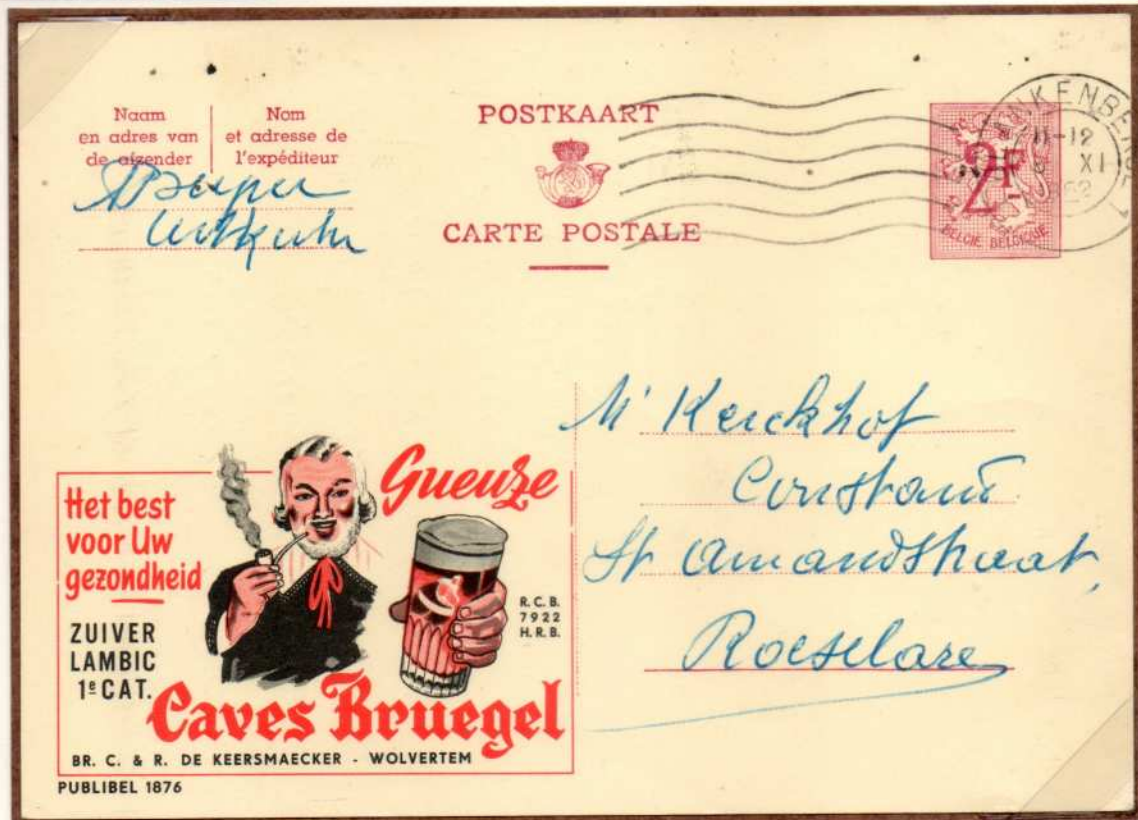 Naam
en adres van
de afzender
Nom
et adresse de
l'expéditeur
POSTKAART
CARTE POSTALE
2F
BELGIE BELGIQUE
11-12
XI
Mr Kerckhof
Constant
St Amandstraat,
Roeselare
Het best
voor Uw
gezondheid
Gueuze
ZUIVER
LAMBIC
1e CAT.
R.C.B.
7922
H.R.B.
Caves Bruegel
BR. C. & R. DE KEERSMAECKER - WOLVERTEM
PUBLIBEL 1876